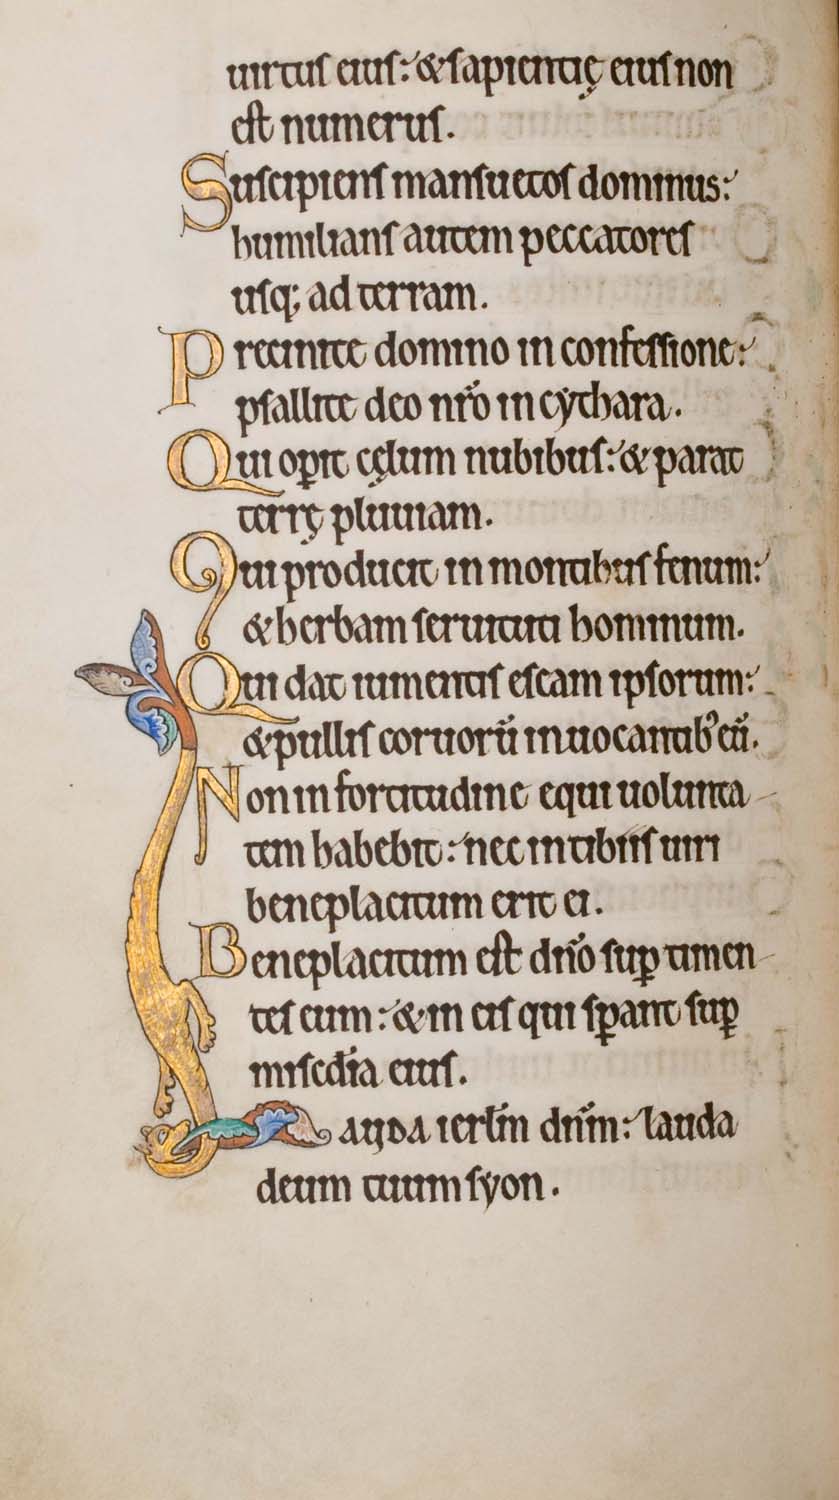 uirtus eius: & sapientię eius non
est numerus.
Suscipiens mansuetos dominus:
humilians autem peccatores
usq; ad terram.
Precinite domino in confessione:
psallite deo nr̄o in cẏthara.
Qui oꝑit cęlum nubibus: & parat
terrę pluuiam.
Qui producit in montibus fenum:
& herbam seruituti hominum.
Qui dat iumentis escam ipsorum:
& pullis coruorū inuocantib᾽ eū.
Non in fortitudine equi uolunta
tem habebit: nec in tibiis uiri
beneplacitum erit ei.
Beneplacitum est dn̄o suꝑ timen
tes eum: & in eis qui sꝑant suꝑ
misc̄dia eius.
LAUDA ierl̄m dn̄m: lauda
deum tuum sẏon.